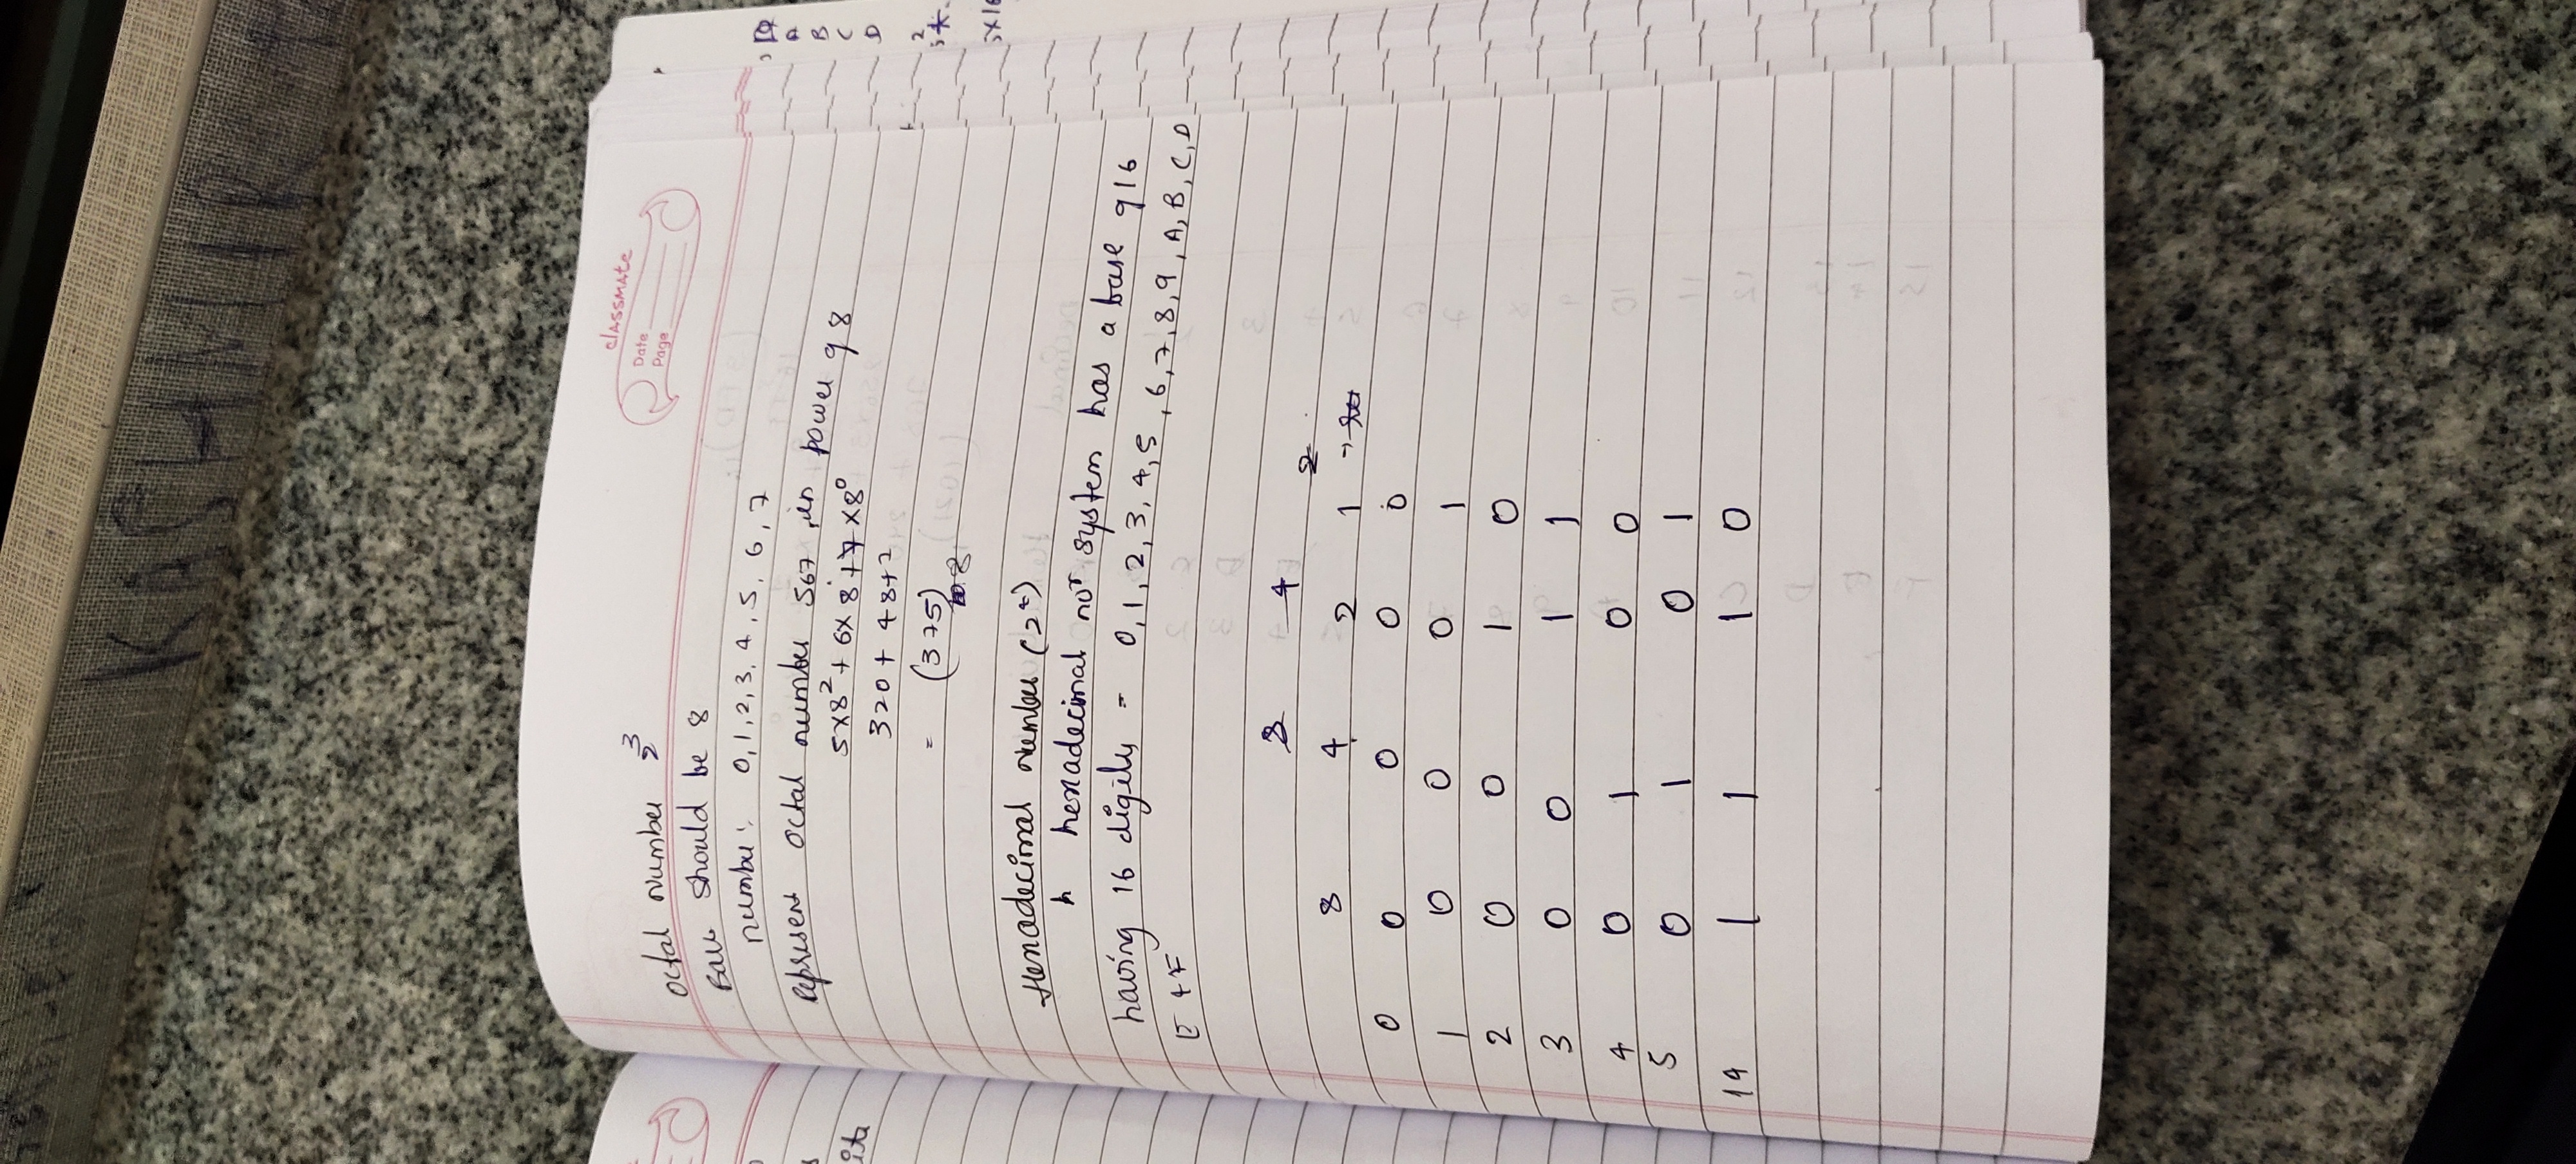 KASHMIR
classmate
Date
Page
octal number 2³
Base should be 8
number: 0,1,2,3,4,5,6,7
represent octal number 567 in power of 8
5×8²+6×8+7×8⁰
320+48+7
= (375)8
Hexadecimal number (2⁴)
h hexadecimal nor system has a base of 16
having 16 digits = 0,1,2,3,4,5,6,7,8,9,A,B,C,D
E & F
8 4 2
8 4 2 1 →
0 0 0 0 0
1 0 0 0 1
2 0 0 1 0
3 0 0 1 1
4 0 1 0 0
5 0 1 0 1
14 1 1 1 0
A
B
C
D
2
5×16